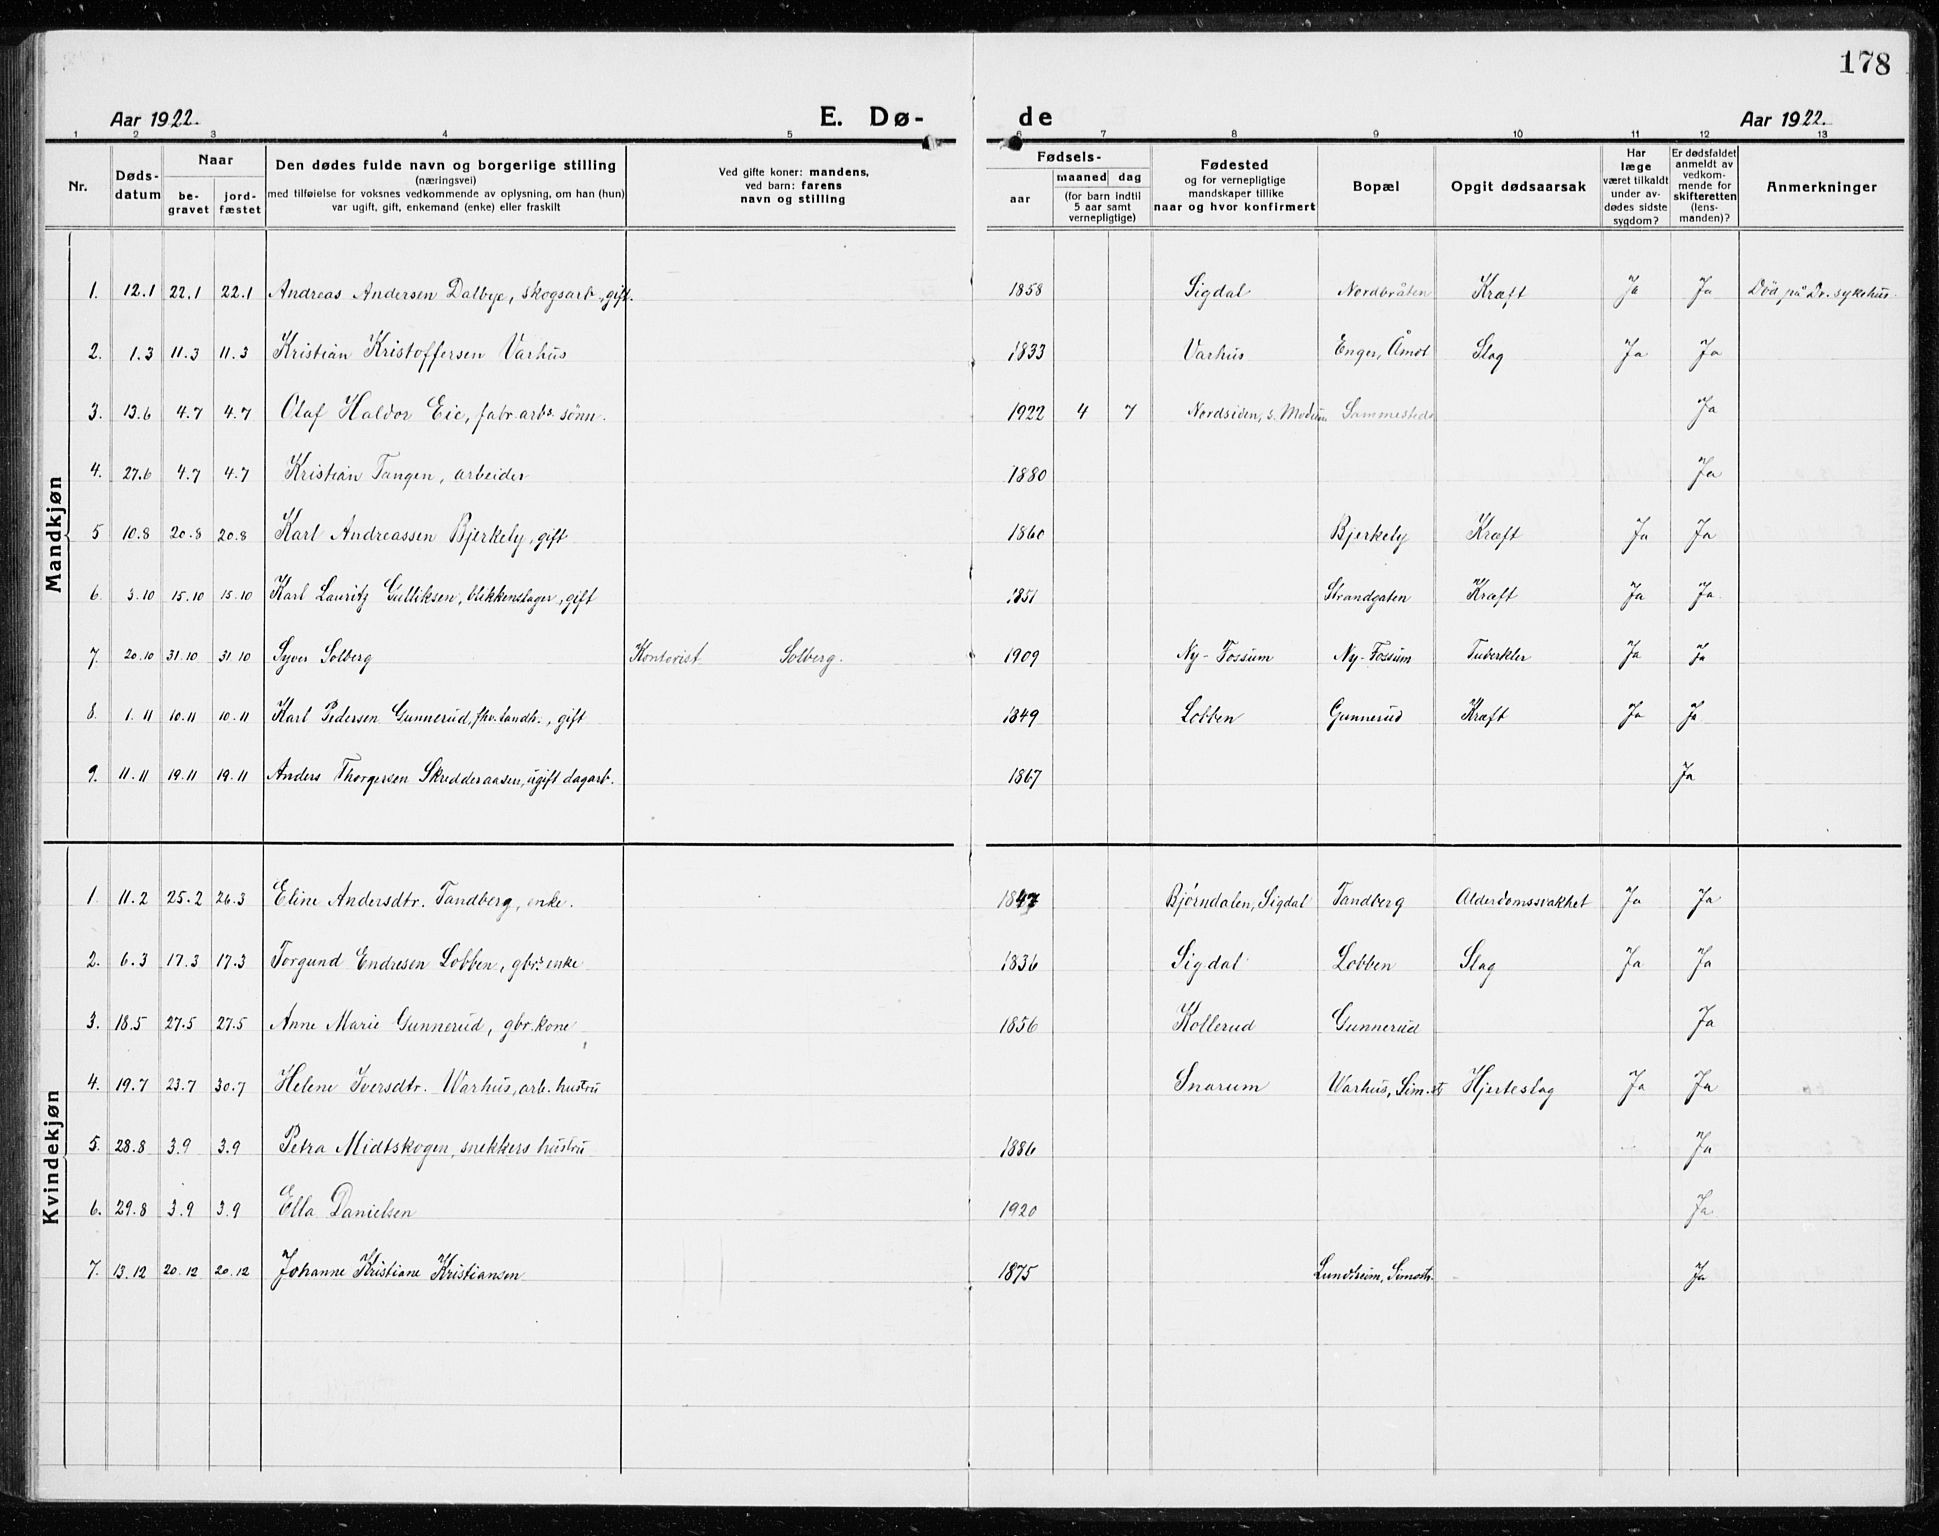 178
Aar 1922. E. Dø- de Aar 1922.
1 2 3 4 5 6 7 8 9 10 11 12 13
Nr.
Døds-
datum
Naar
be-
gravet
jord-
fæstet
Den dødes fulde navn og borgerlige stilling
(næringsvei)
med tilføielse for voksnes vedkommende av oplysning, om han (hun)
var ugift, gift, enkemand (enke) eller fraskilt
Ved gifte koner: mandens,
ved barn: farens
navn og stilling
Fødsels-
aar
maaned dag
(for barn indtil
5 aar samt
vernepligtige)
Fødested
og for vernepligtige
mandskaper tillike
naar og hvor konfirmert
Bopæl
Opgit dødsaarsak
Har
læge
været tilkaldt
under av-
dødes sidste
sygdom?
Er dødsfaldet
anmeldt av
vedkom-
mende for
skifteretten
(lens-
manden)?
Anmerkninger
Mandkjøn
1. 12.1 22.1 22.1 Andreas Andersen Dalbye, skogsarb., gift. 1858 Sigdal Nordbråten Kræft Ja Ja Død på Dr. sykehus.
2. 1.3 11.3 11.3 Kristian Kristoffersen Varhus 1833 Varhus Enger, Åmot Slag Ja Ja
3. 13.6 4.7 4.7 Olaf Haldor Eie, fabr.arbs. sønn. 1922 4 7 Nordsiden, s. Modum Sammesteds Ja
4. 27.6 4.7 4.7 Kristian Tangen, arbeider 1880 Ja
5 10.8 20.8 20.8 Karl Andreassen Bjerkely, gift 1860 Bjerkely Kræft Ja Ja
6. 3.10 15.10 15.10 Karl Lauritz Gulliksen, blikkenslager, gift 1851 Strandgaten Kræft Ja Ja
7. 20.10 31.10 31.10 Syver Solberg Kontorist Solberg. 1909 Ny-Fossum Ny-Fossum Tuberkler Ja Ja
8. 1.11 10.11 10.11 Karl Pedersen Gunnerud, fhv. landh., gift 1849 Lobben Gunnerud Kræft Ja Ja
9. 11.11 19.11 19.11 Anders Thorgersen Skredderaasen, ugift dagarb. 1867 Ja
Kvindekjøn
1. 11.2 25.2 26.3 Eline Andersdtr. Tandberg, enke. 1847 Bjørndalen, Sigdal Tandberg Alderdomssvakhet Ja Ja
2. 6.3 17.3 17.3 Torgund Endresen Lobben, gbr.s enke 1836 Sigdal Lobben Slag Ja Ja
3. 18.5 27.5 27.5 Anne Marie Gunnerud, gbr. kone 1856 Kollerud Gunnerud Ja
4. 19.7 23.7 30.7 Helene Iversdtr. Warhus, arb. hustru Snarum Warhus, Sim.st Hjerteslag Ja Ja
5. 28.8 3.9 3.9 Petra Midtskogen, snekkers hustru 1886 Ja
6. 29.8 3.9 3.9 Ella Danielsen 1920 Ja
7. 13.12 20.12 20.12 Johanne Kristiane Kristiansen 1875 Lundheim, Simostr. Ja